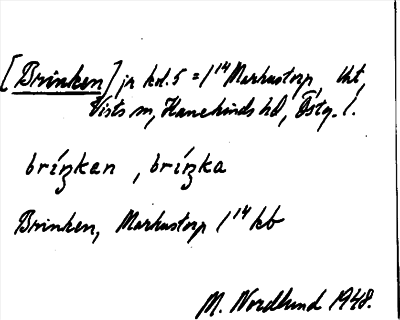 [Brinken] jr kd. 5 = 1 14 Markustorp, tht,
Vists sn, Hanekinds hd, Östg. l.
bríŋkan, bríŋka
Brinken, Markustorp 1 14 kb
M. Nordlund 1948.